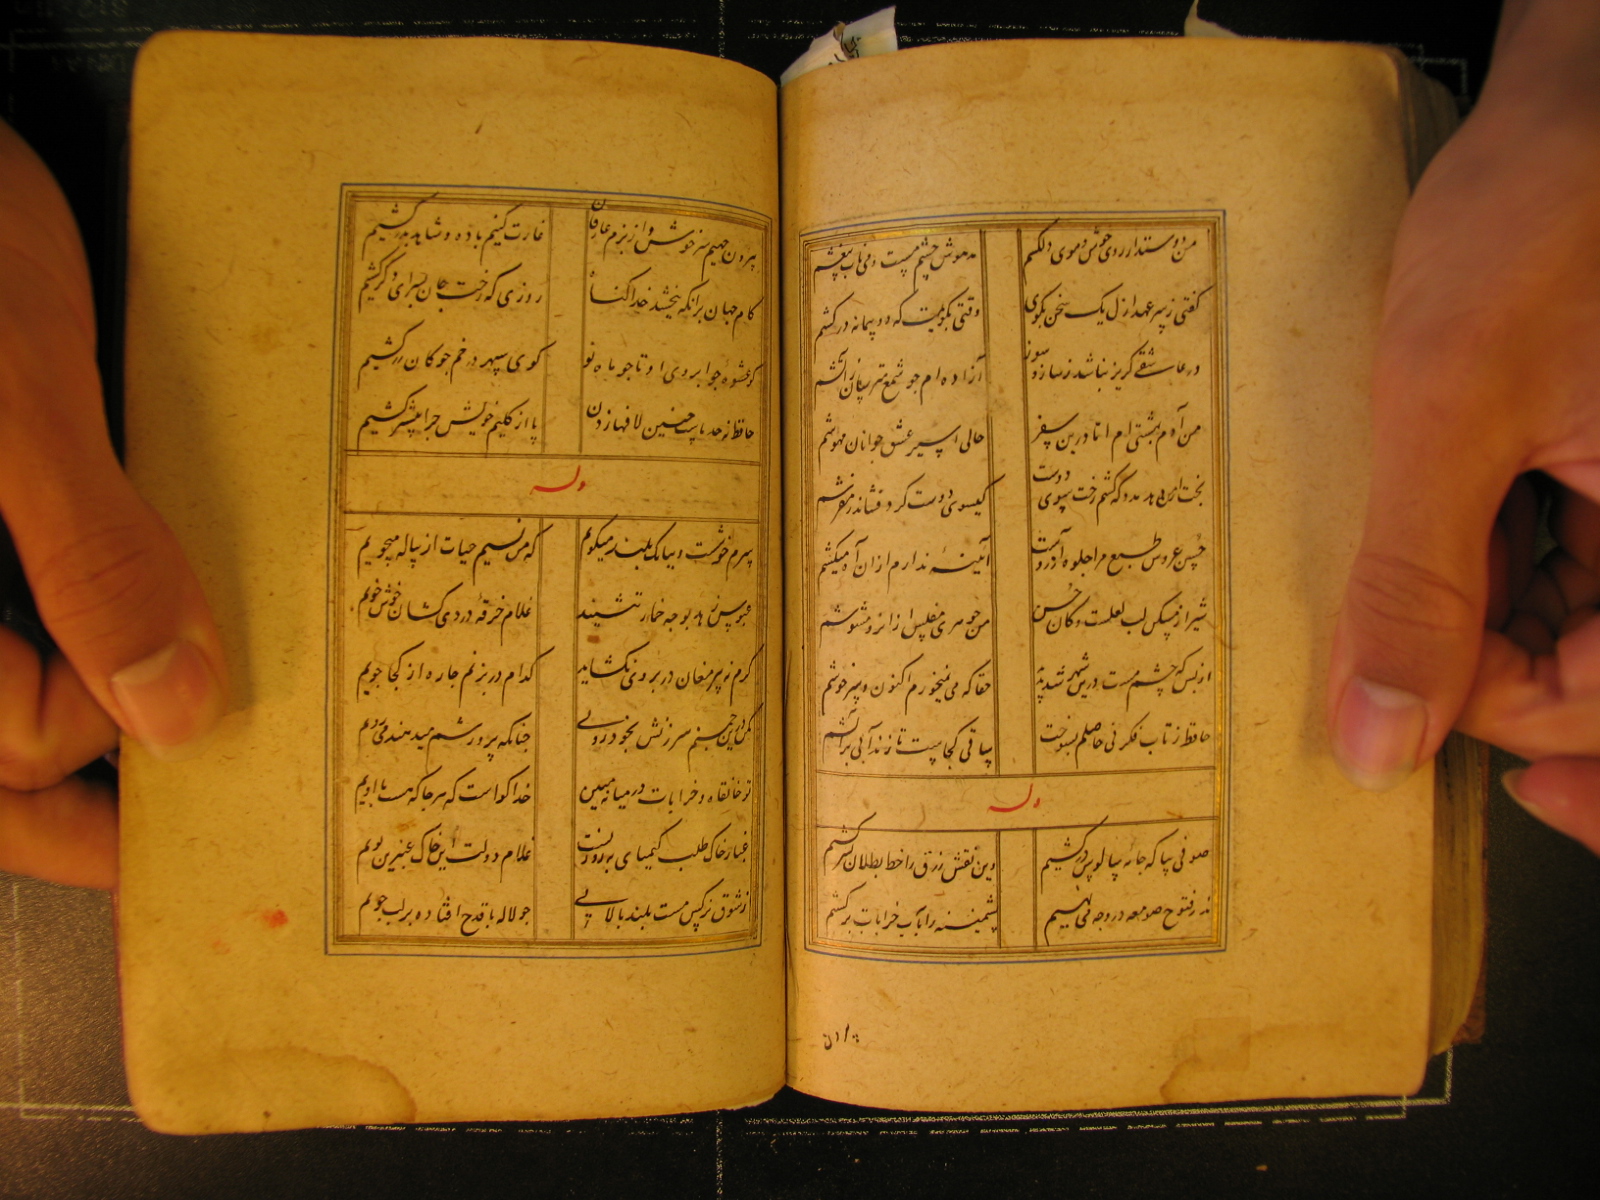 من دوستدار روی خوش و موی دلکشم
مدهوش چشم مست و می ناب بیغشم
گفتی ز سر عهد ازل یک سخن بگوی
وقتی بگویمت که دو پیمانه درکشم
در عاشقی گریز نباشد ز ساز و سوز
آزاده ام جو شمع مترسان ز آتشم
من آدم بهشتی ام اما درین سفر
حالی اسیر عشق جوانان مهوشم
بخت ار مدد دهد که کشم رخت سوی دوست
گیسوی دوست گرد فشاند ز مفرشم
حسن عروس طبع مرا جلوه آرزوست
آئینهٔ ندارم ازان آه میکشم
شیراز معدن لب لعلست و کان حسن
من جوهری مفلس ازانرو مشوشم
از بس که چشم مست درین شهر دیده
حقا که می نمیخورم اکنون و سرخوشم
حافظ ز تاب فکر تی حاصلم بسوخت
ساقی کجاست تا زند آبی بر آتشم
وله
صوفی بیا که جامه سالوس درکشیم
وین نقش زرق را خط بطلان بسر کشیم
نذر و فتوح صومعه در وجه می نهیم
پشمینه را بآب خرابات برکشیم
بیرون
بیرون جهیم سرخوش و از بزم عارفان
غارت کنیم باده و شاهد ببر کشیم
کام جهان برانکه ببخشد خدا کنا
روزی که رخت جان بسرای دگر کشیم
کو عشوه جو ابروی او تا جو ماه نو
کوی سپهر در خم جوکان زر کشیم
حافظ نه حد ماست چنین لافها زدن
پا از کلیم خویش جرا بیشتر کشیم
وله
سرم خوشست و ببانک بلند میکویم
که من نسیم حیات از پیاله میجویم
عبوس زهد بوجه خمار ننشیند
غلام خرقه دردی کشان خوش خویم
کرم نه پیر مغان در بروی بکشاید
کدام در بزنم جاره از کجا جویم
مکن درین جمنم سرزنش بخودرویی
جنانکه پرورشم میدهند میرویم
تو خانقاه و خرابات در میانه مبین
خدا کواست که هر جا که هست با اویم
غبار خاک طلب کیمیای بهروزیست
غلام دولت این خاک عنبرین بویم
ز شوق نرکس مست بلند بالایی
جو لاله با قدح افتاده بر لب جویم